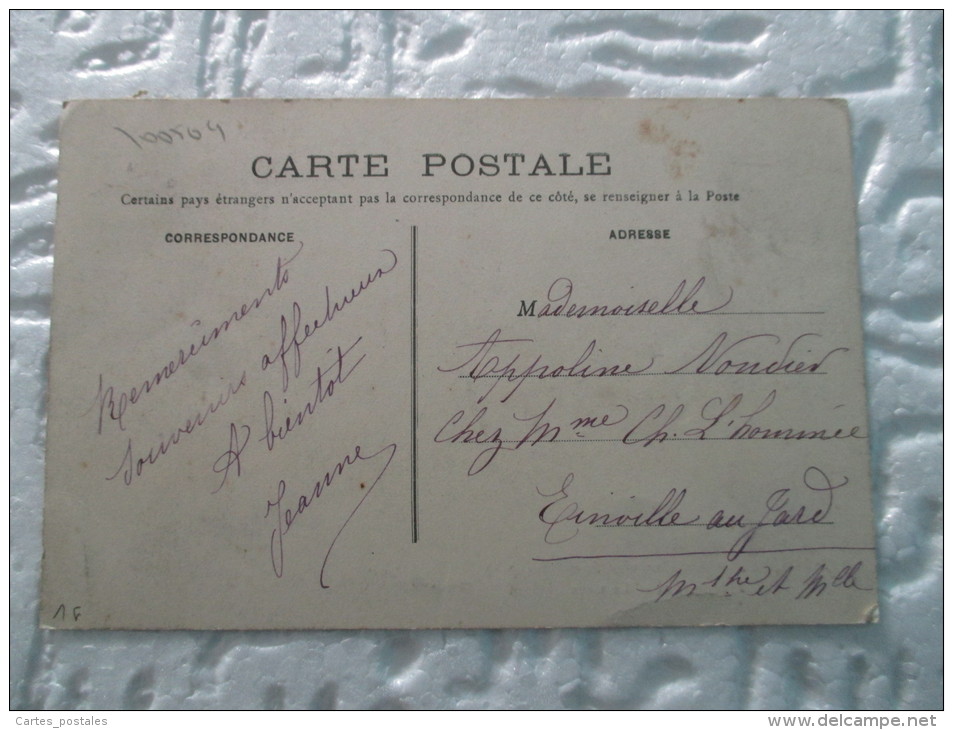 100504
CARTE POSTALE
Certains pays étrangers n'acceptant pas la correspondance de ce côté, se renseigner à la Poste
CORRESPONDANCE
Remerciments
Souvenirs affectueux
A bientôt
Jeanne
ADRESSE
Mademoiselle
Appoline Nondier
Chez Mme Ch. L'hominée
Einville au Jard
Mthe et Mlle
1€
Cartes_postales
www.delcampe.net